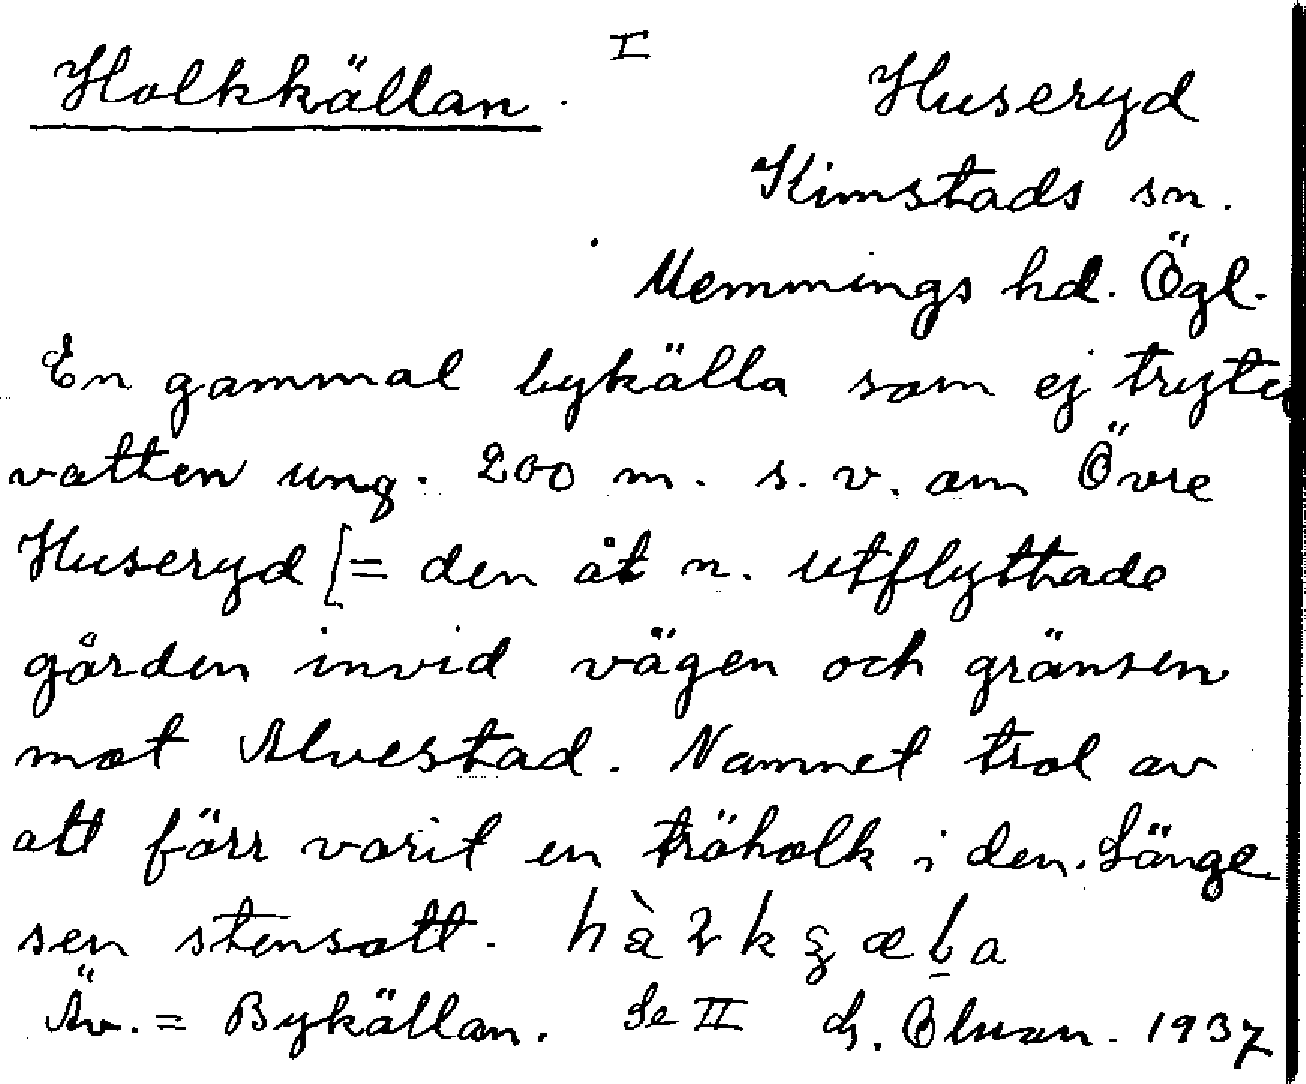 Holkkällan. I Huseryd
Kimstads sn.
Memmings hd. Ögl.
En gammal bykälla som ej tryter
vatten ung. 200 m. s. v. om Övre
Huseryd [= den åt n. utflyttade
gården invid vägen och gränsen
mot Alvestad. Namnet trol av
att förr varit en träholk i den. Länge
sen stensatt.
Äv. = Bykällan. Se II 1937